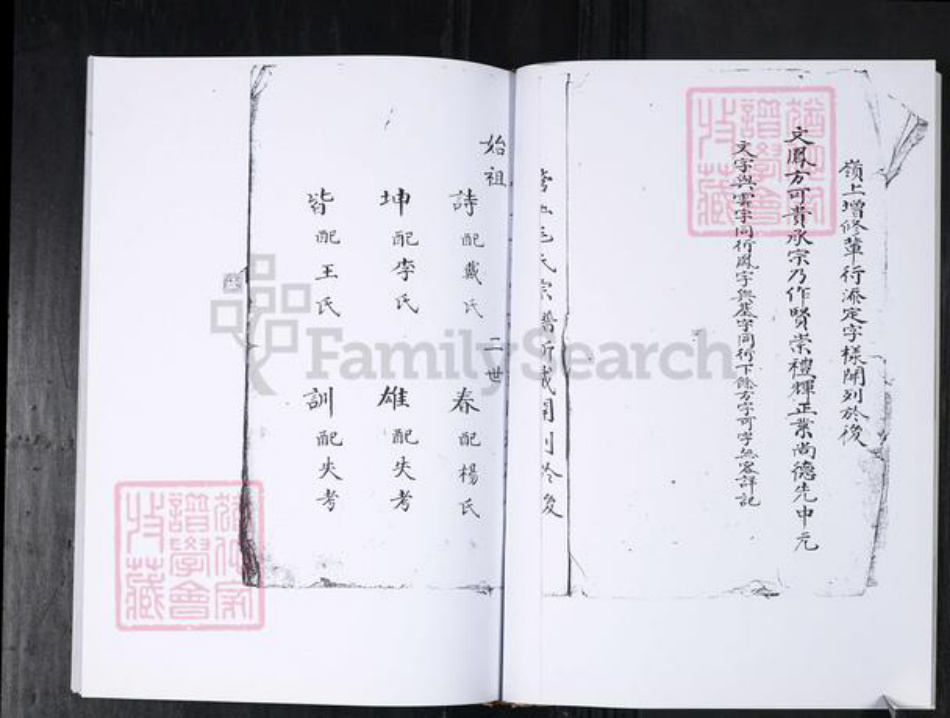 嶺上增修輩行派定字樣開列於後
文鳳方可貴承宗乃作賢崇禮輝正業尚德先申元
文字與雲字同行鳳字與基字同行下餘方字可字無容詳記
毛氏宗譜所載開列於後
始祖
二世
詩配戴氏
春配楊氏
坤配李氏
雄配失考
皆配王氏
訓配失考
譜學會
收藏
FamilySearch